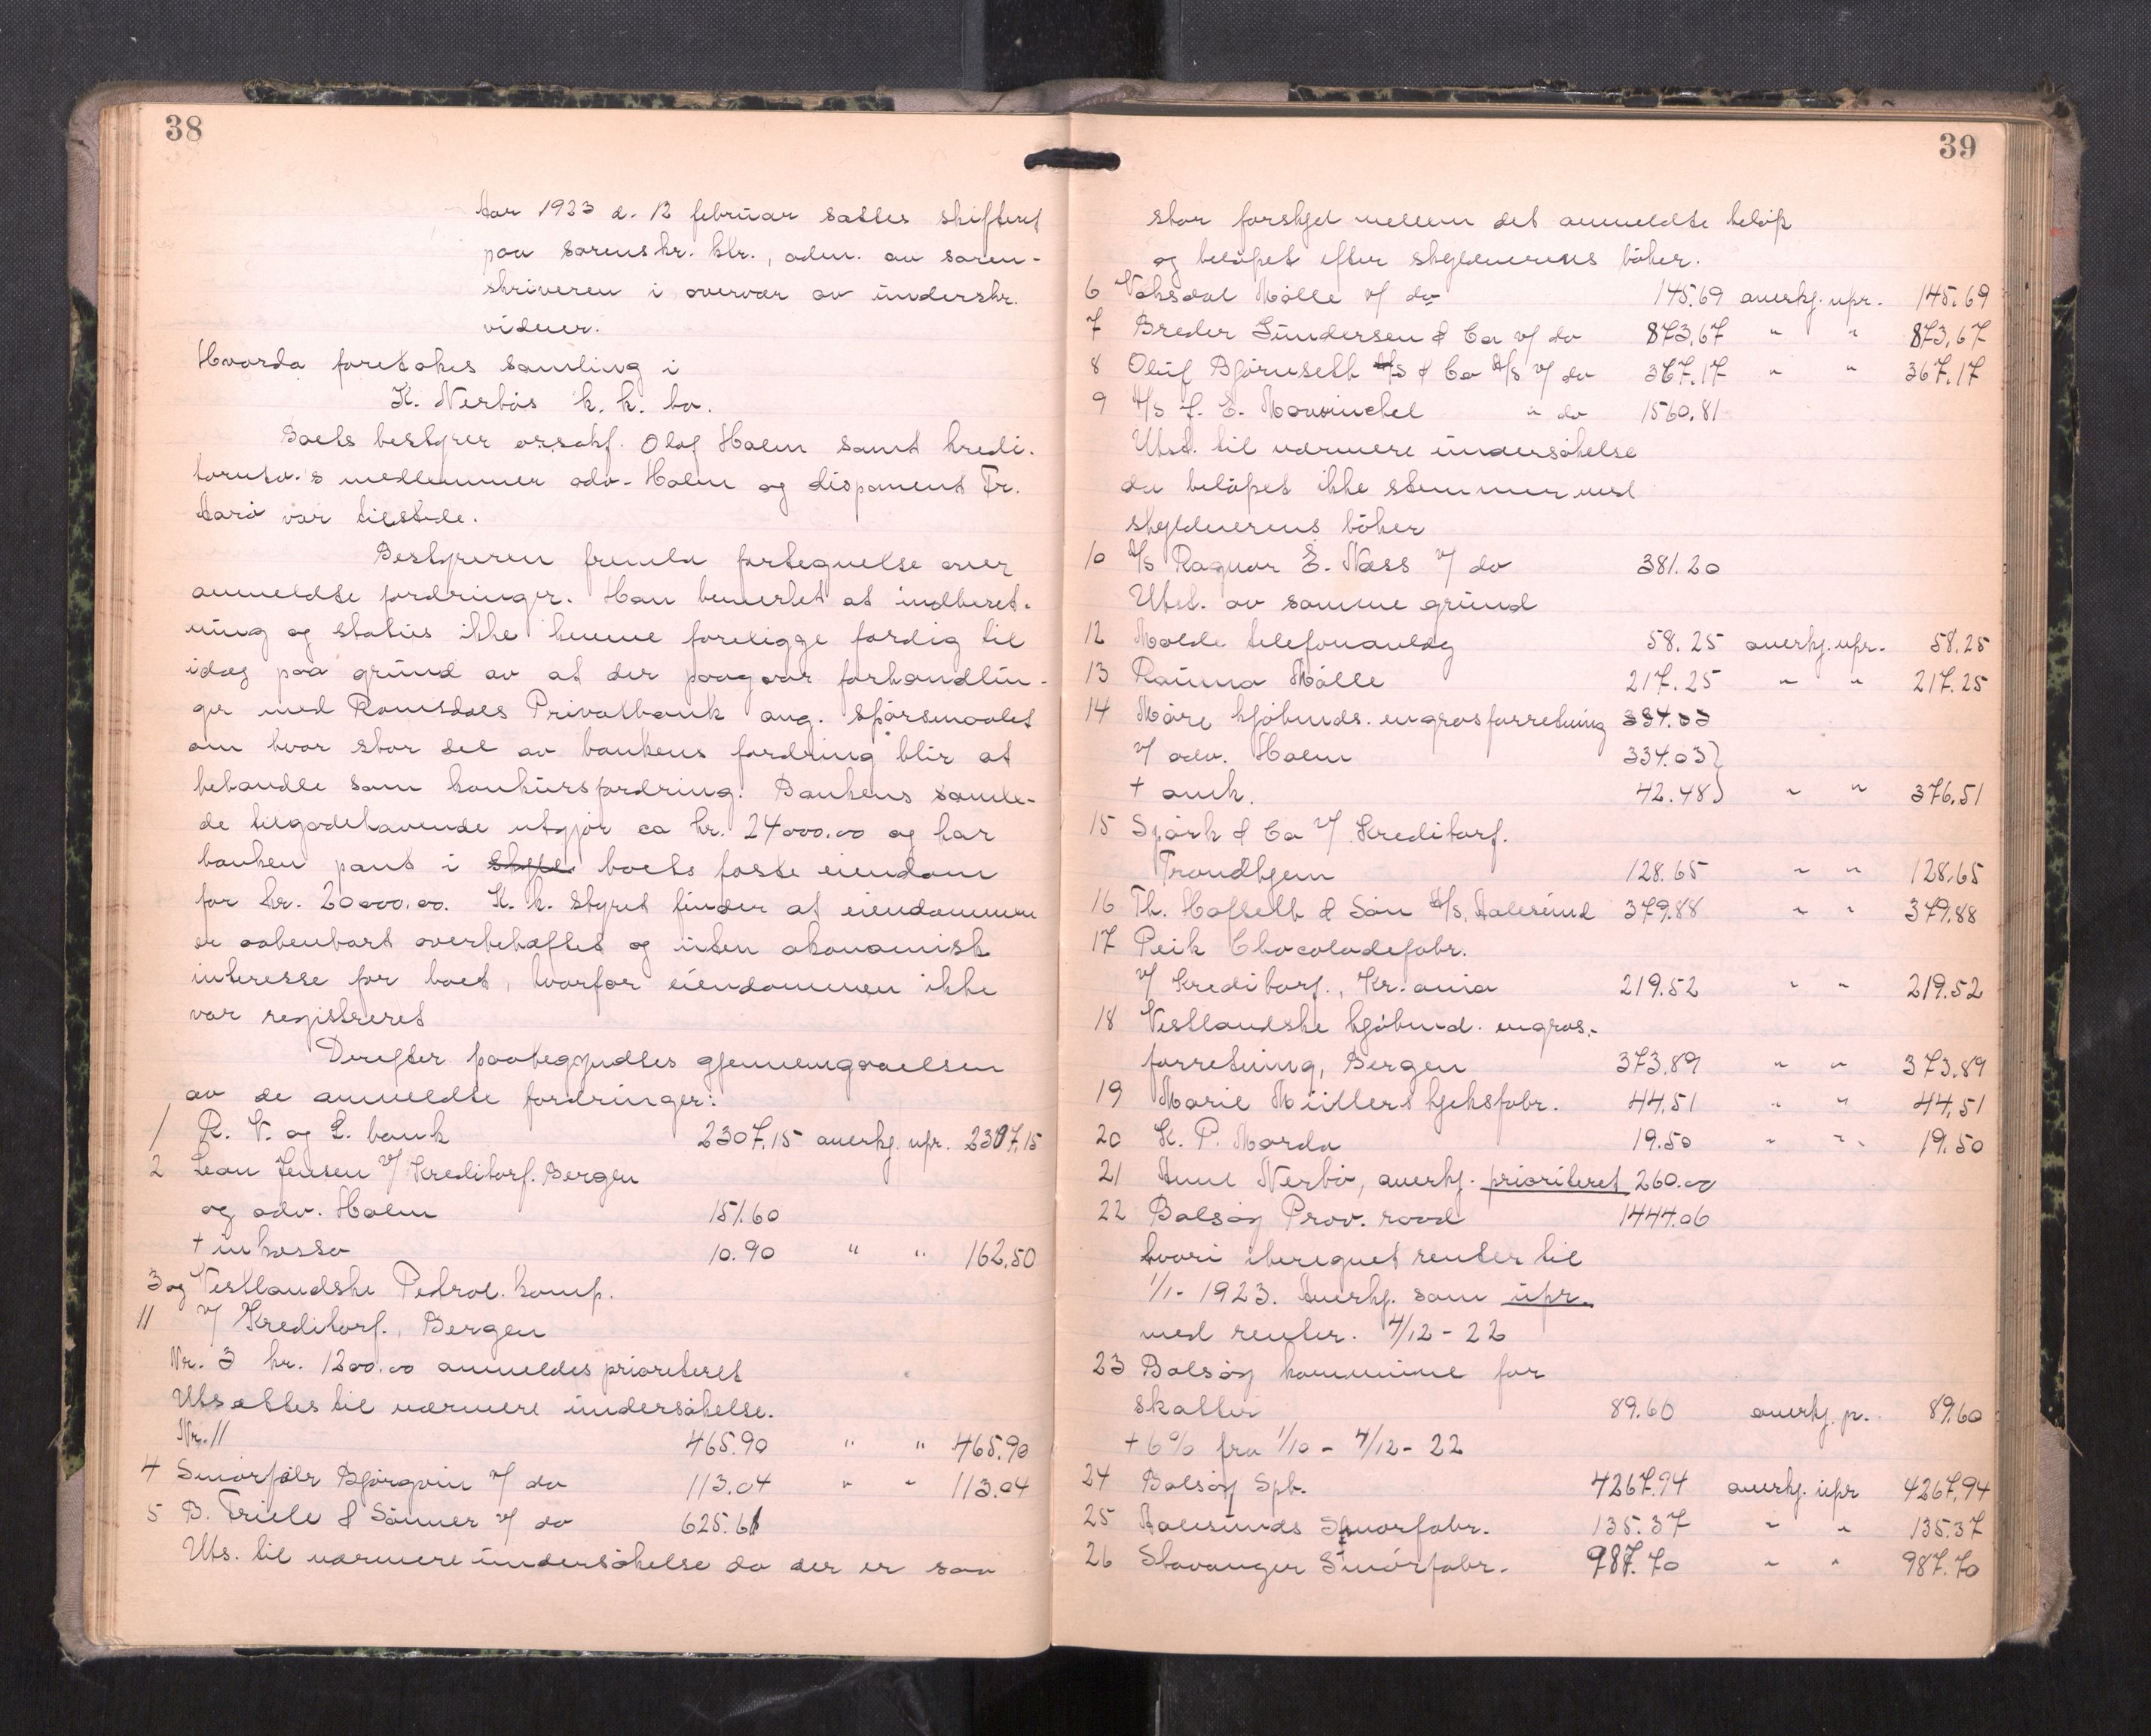 38
Aar 1923 d. 12 februar sattes skifteret
paa sorenskr. ktr., adm. av soren-
skriveren i overvær av underskr.
vidner.
Hvorda foretokes samling i
K. Nerbös k. k. bo.
Boets bestyrer orsakf. Olaf Holm samt kredi-
torutv.s medlemmer adv. Holm og disponent Fr.
Aarö var tilstede.
Bestyreren fremla fortegnelse over
anmeldte fordringer. Han bemerket at indberet-
ning og status ikke kunne foreligge færdig til
idag paa grund av at der paagaar forhandlin-
ger med Romsdals Privatbank ang. spörsmaalet
om hvor stor del av bankens fordring blir at
behandle som konkursfordring. Bankens samle-
de tilgodehavende utgjör ca kr. 24000.00 og har
banken pant i boets faste eiendom
for kr. 20000.00. K. k. styret finder at eiendommen
er aabenbart overbeheftet og uten ökonomisk
interesse for boet, hvorfor eiendommen ikke
var registreret
Derefter paabegyndtes gjennemgaaelsen
av de anmeldte fordringer:
1 R. V. og L. bank 2307,15 anerkj. upr. 2307,15
2 Leon Jensen v/ Kreditorf. Bergen
og adv. Holm 151.60
+ inkasso 10.90 " " 162,50
3 og Vestlandske Petrol. komp.
11 v/ Kreditorf., Bergen
Nr. 3 kr. 1200.00 anmeldes prioriteret
Utsættes til nærmere undersökelse.
Nr. 11 465.90 " " 465.90
4 Smörfabr Björgvin v/ do 113.04 " " 113.04
5 B. Friele & Sönner v/ do 625.61
Uts. til nærmere undersökelse da der er saa
39
stor forskjel mellem det anmeldte belöp
og belöpet efter skyldnerens böker.
6 Vaksdal Mölle v/ do 145.69 anerkj. upr. 145.69
7 Breder Gundersen & Co v/ do 873,67 " " 873,67
8 Oluf Björnseth A/S & Co A/S v/ do 367.17 " " 367.17
9 A/S J. E. Mowinckel " do 1560.81
Utst. til nærmere undersökelse
da belöpet ikke stemmer med
skyldnerens böker
10 A/S Ragnar E. Næss v/ do 381.20
Utst. av samme grund
12 Molde telefonanlæg 58.25 anerkj. upr. 58.25
13 Rauma Mölle 217.25 " " 217.25
14 Möre kjöbmds. engrosforretning 334.03
v/ adv. Holm 334.03}
+ omk. 42.48} " " 376,51
15 Spörk & Co v/ Kreditorf.
Trondhjem 128.65 " " 128,65
16 Th. Hofseth & Sön A/S, Aalesund 379.88 " " 379.88
17 Peik Chocoladefabr.
v/ Kreditorf., Kr.ania 219.52 " " 219.52
18 Vestlandske kjöbmd. engros-
forretning, Bergen 373.89 " " 373.89
19 Marie Müllers kjeksfabr. 44,51 " " 44,51
20 K. P. Morda 19.50 " " 19.50
21 Anne Nerbö, anerkj. prioriteret 260.00
22 Bolsöy Prov. raad 1444.06
hvori iberegnet renter til
1/1- 1923. Anerkj. som upr.
med renter. 4/12 - 22
23 Bolsöy kommune for
skatter 89.60 anerkj. p. 89.60
+ 6% fra 1/10 - 4/12 - 22
24 Bolsöy Spb. 4267.94 anerkj. upr 4267,94
25 Aalesunds Smörfabr. 135.37 " " 135.37
26 Stavanger Smörfabr. 987.70 " " 987.70